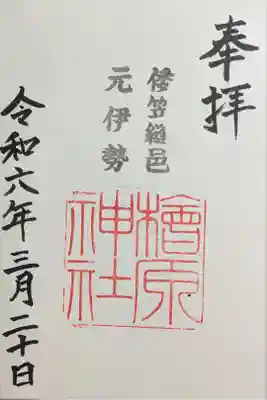 奉拝
倭笠縫邑
元伊勢
檜原神社
令和六年三月二十日